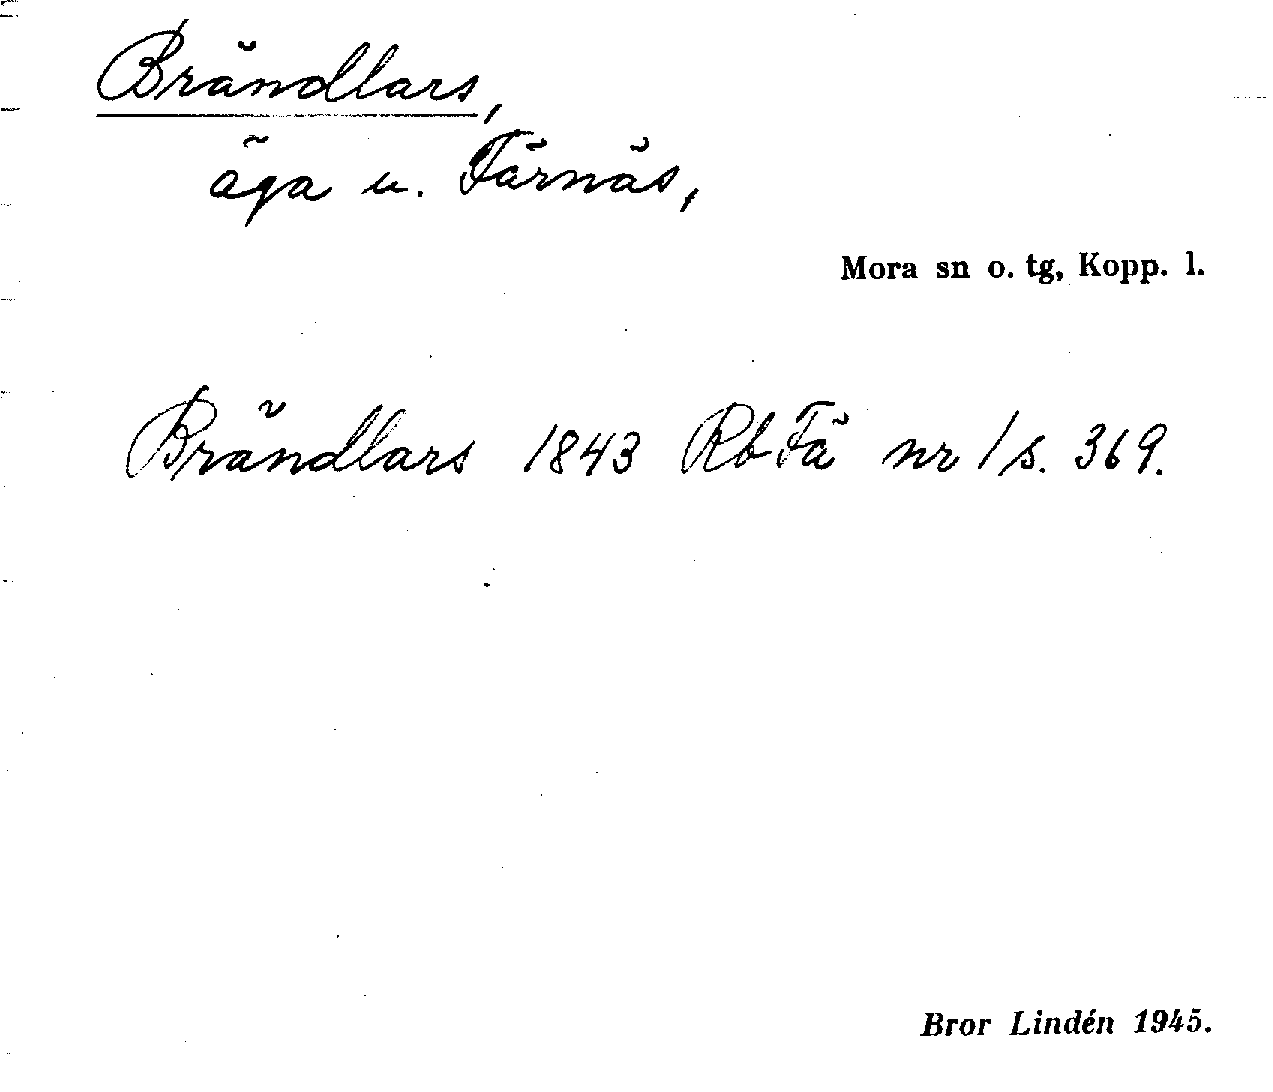 Brändlars,
äga u. Färnäs,
Mora sn o. tg, Kopp. l.
Brändlars 1843 Rb Fä nr 1 s. 369.
Bror Lindén 1945.